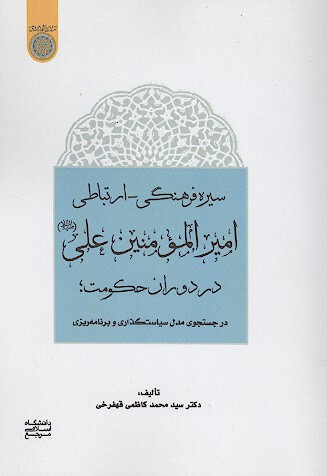 سیره فرهنگی-ارتباطی
امیرالمؤمنین علی
در دوران حکومت؛
در جستجوی مدل سیاستگذاری و برنامه‌ریزی
تألیف:
دکتر سید محمد کاظمی قهفرخی
دانشگاه
اسلامی
مرجع